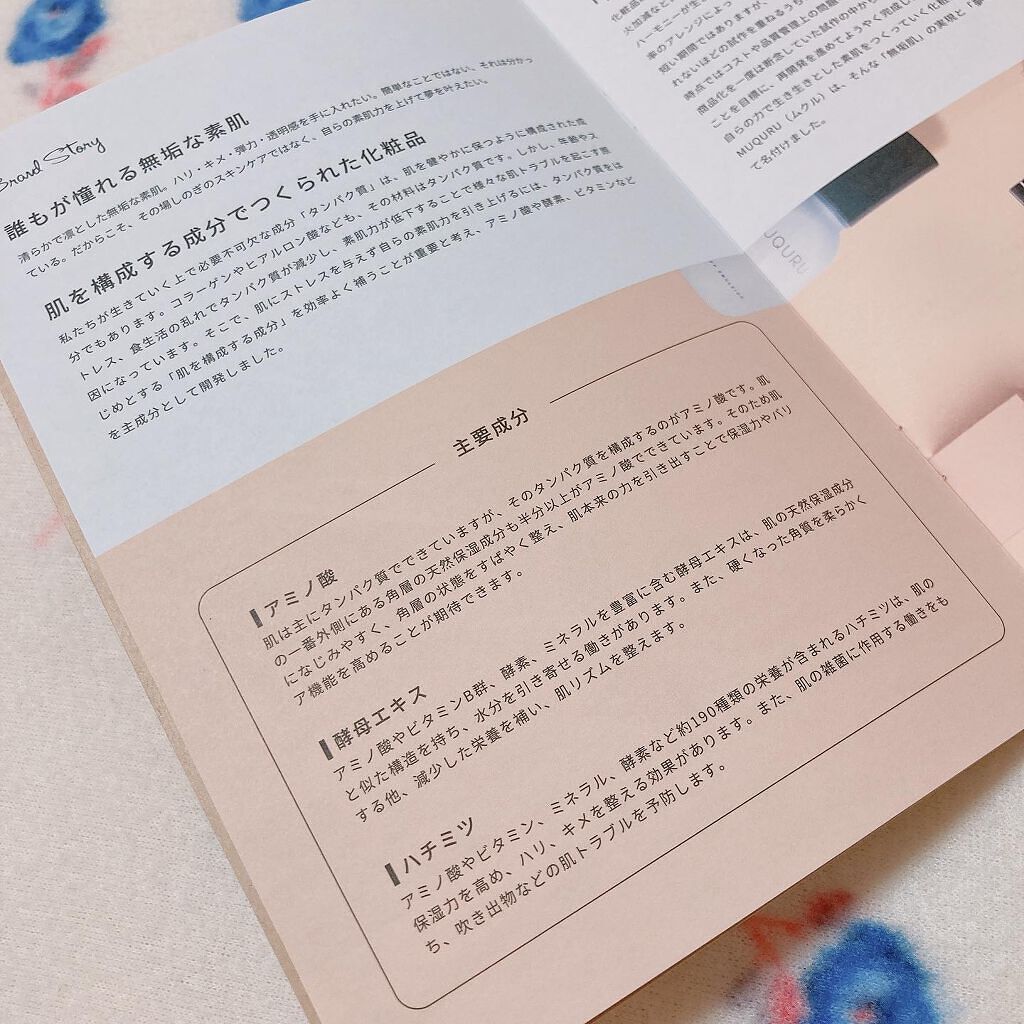 Brand Story
誰もが憧れる無垢な素肌
清らかで凛とした無垢な素肌。ハリ・キメ・弾力・透明感を手に入れたい。簡単なことではない、それは分かっ
ている。だからこそ、その場しのぎのスキンケアではなく、自らの素肌力を上げて夢を叶えたい。
肌を構成する成分でつくられた化粧品
私たちが生きていく上で必要不可欠な成分「タンパク質」は、肌を健やかに保つように構成された成
分でもあります。コラーゲンやヒアルロン酸なども、その材料はタンパク質です。しかし、年齢やス
トレス、食生活の乱れでタンパク質が減少し、素肌力が低下することで様々な肌トラブルを起こす原
因になっています。そこで、肌にストレスを与えず自らの素肌力を引き上げるには、タンパク質をは
じめとする「肌を構成する成分」を効率よく補うことが重要と考え、アミノ酸や酵素、ビタミンなど
を主成分として開発しました。
主要成分
アミノ酸
肌は主にタンパク質でできていますが、そのタンパク質を構成するのがアミノ酸です。肌
の一番外側にある角層の天然保湿成分も半分以上がアミノ酸でできています。そのため肌
になじみやすく、角層の状態をすばやく整え、肌本来の力を引き出すことで保湿力やバリ
ア機能を高めることが期待できます。
酵母エキス
アミノ酸やビタミンB群、酵素、ミネラルを豊富に含む酵母エキスは、肌の天然保湿成分
と似た構造を持ち、水分を引き寄せる働きがあります。また、硬くなった角質を柔らかく
する他、減少した栄養を補い、肌リズムを整えます。
ハチミツ
アミノ酸やビタミン、ミネラル、酵素など約190種類の栄養が含まれるハチミツは、肌の
保湿力を高め、ハリ、キメを整える効果があります。また、肌の雑菌に作用する働きをも
ち、吹き出物などの肌トラブルを予防します。
火加減など、
ハーモニーが生
率のアレンジによっ
短い期間ではありますが、
れないほどの試作を重ねるうち
時点ではコストや品質管理上の問題
商品化を一度は断念していた試作の中から
ことを目標に、再開発を進めてようやく完成し
自らの力で生き生きとした素肌をつくっていく化粧
MUQURU（ムクル）は、そんな「無垢肌」の実現と「夢
て名付けました。
UQURU